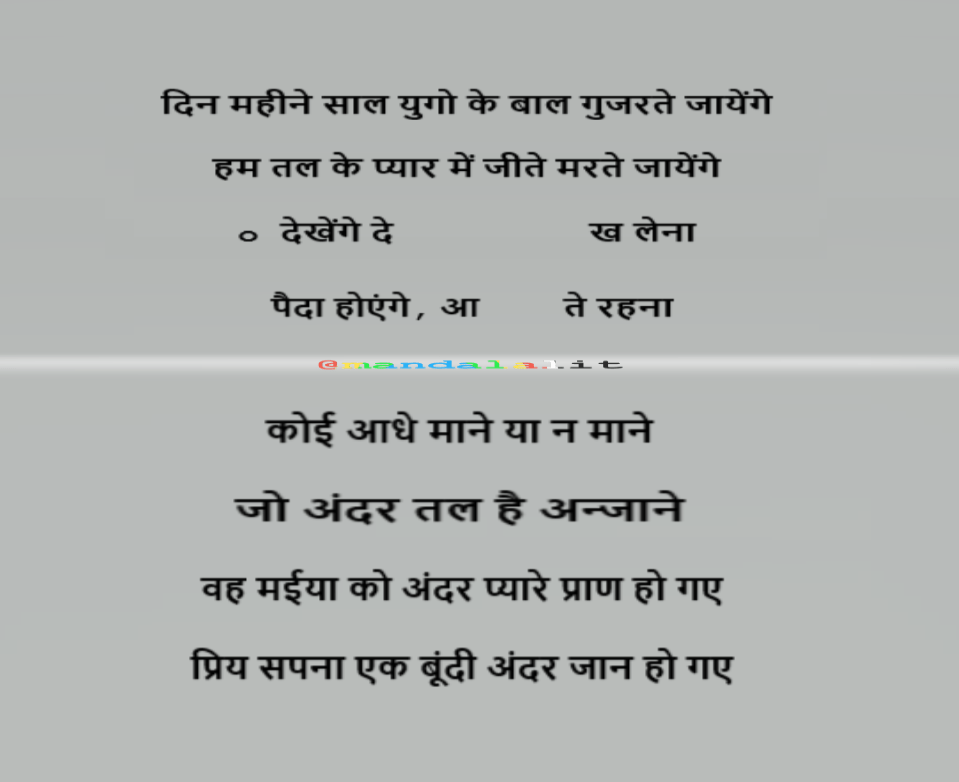 दिन महीने साल युगो के बाल गुजरते जायेंगे
हम तल के प्यार में जीते मरते जायेंगे
० देखेंगे दे ख लेना
पैदा होएंगे, आ ते रहना
@mandala.it
कोई आधे माने या न माने
जो अंदर तल है अन्जाने
वह मईया को अंदर प्यारे प्राण हो गए
प्रिय सपना एक बूंदी अंदर जान हो गए